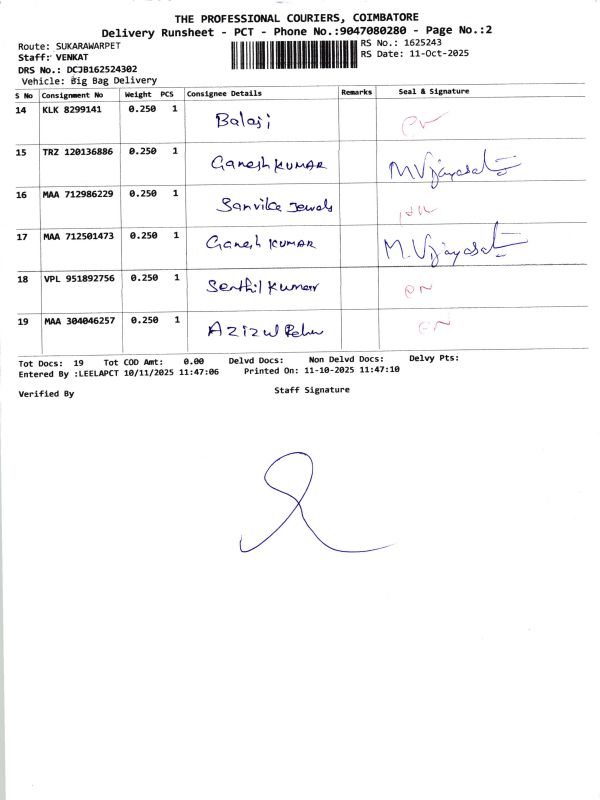 THE PROFESSIONAL COURIERS, COIMBATORE
Delivery Runsheet - PCT - Phone No.:9047080280 - Page No.:2
Route: SUKARAWARPET RS No.: 1625243
Staff: VENKAT RS Date: 11-Oct-2025
DRS No.: DCJB162524302
Vehicle: Big Bag Delivery
S No Consignment No Weight PCS Consignee Details Remarks Seal & Signature
14 KLK 8299141 0.250 1 Balaji
15 TRZ 120136886 0.250 1 Ganesh KUMAR
16 MAA 712986229 0.250 1 Sanvika Jewels
17 MAA 712501473 0.250 1 Ganesh KUMAR
18 VPL 951892756 0.250 1 Senthil Kumar
19 MAA 304046257 0.250 1 Azizul
Tot Docs: 19 Tot COD Amt: 0.00 Delvd Docs: Non Delvd Docs: Delvy Pts:
Entered By :LEELAPCT 10/11/2025 11:47:06 Printed On: 11-10-2025 11:47:10
Verified By Staff Signature